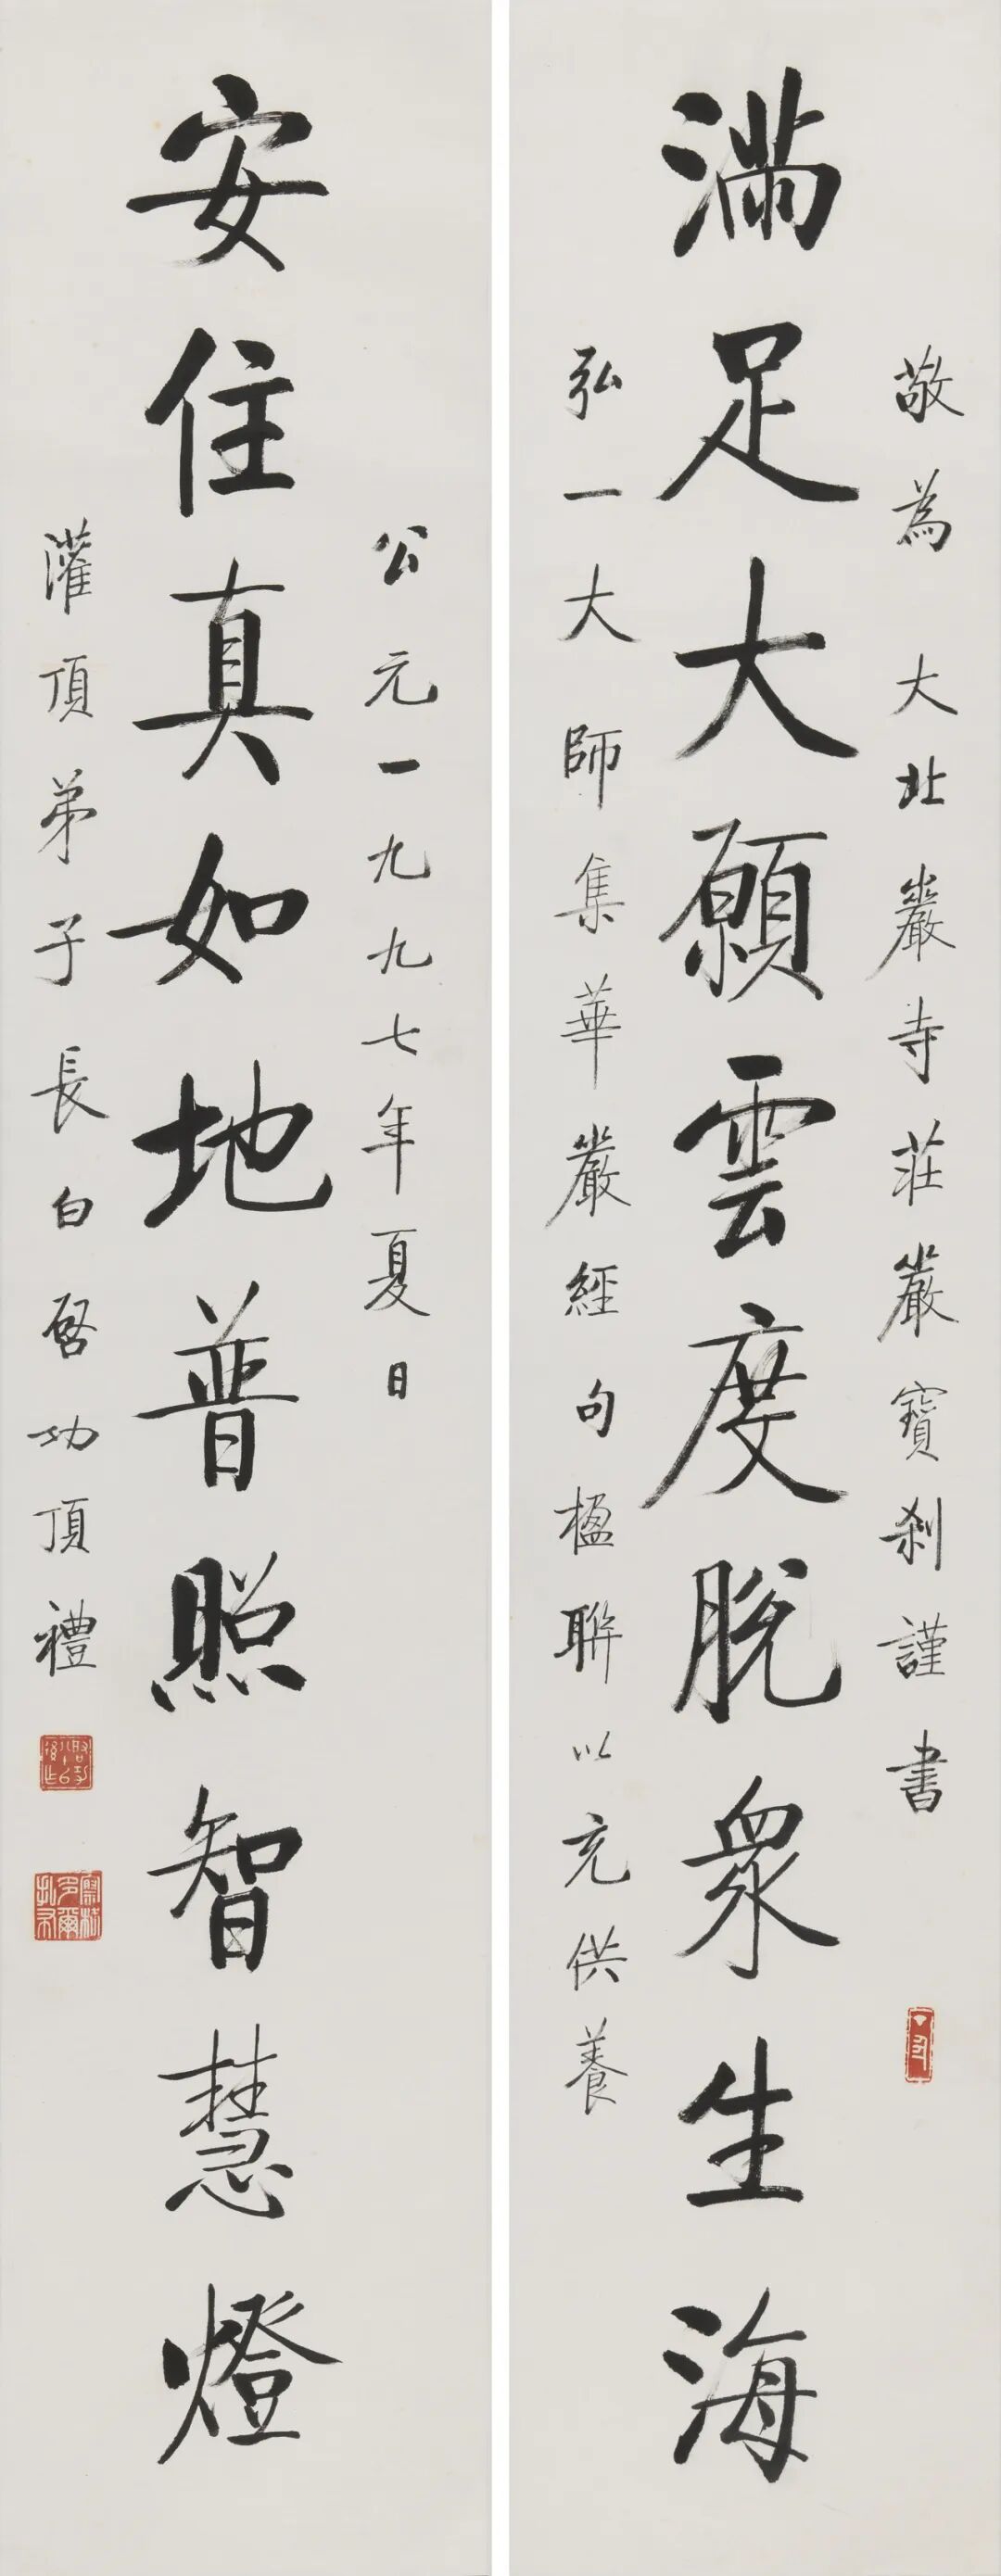 敬為大北巖寺莊嚴寶刹謹書
滿足大願雲度脫眾生海
弘一大師集華嚴經句楹聯以充供養
公元一九九七年夏日
安住真如地普照智慧燈
灌頂弟子長白啓功頂禮